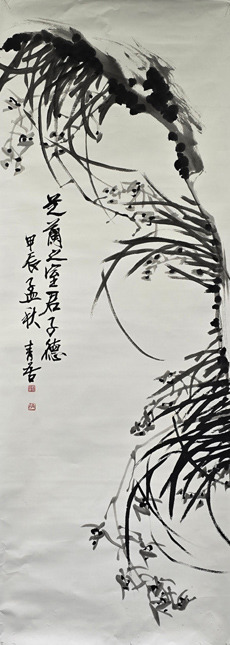 芝蘭之室君子德
甲辰孟秋 青谷